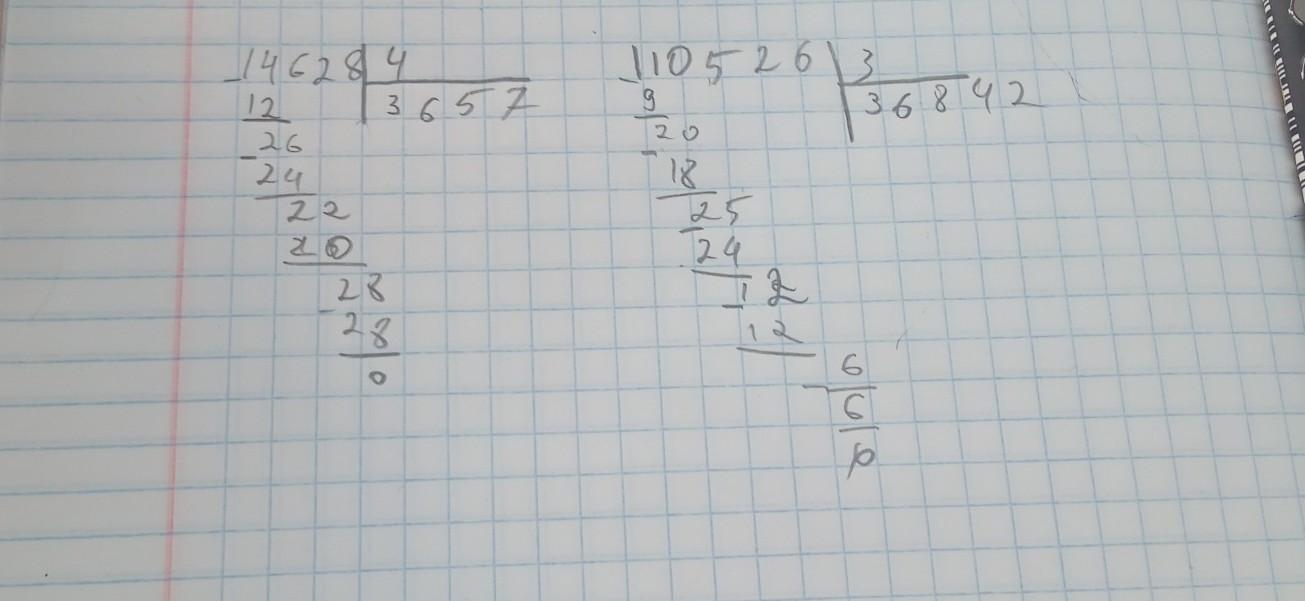 -14628 4
12 3657
-26
24
22
20
-28
28
0
-110526 3
9 36842
-20
18
-25
24
-12
12
-6
6
0